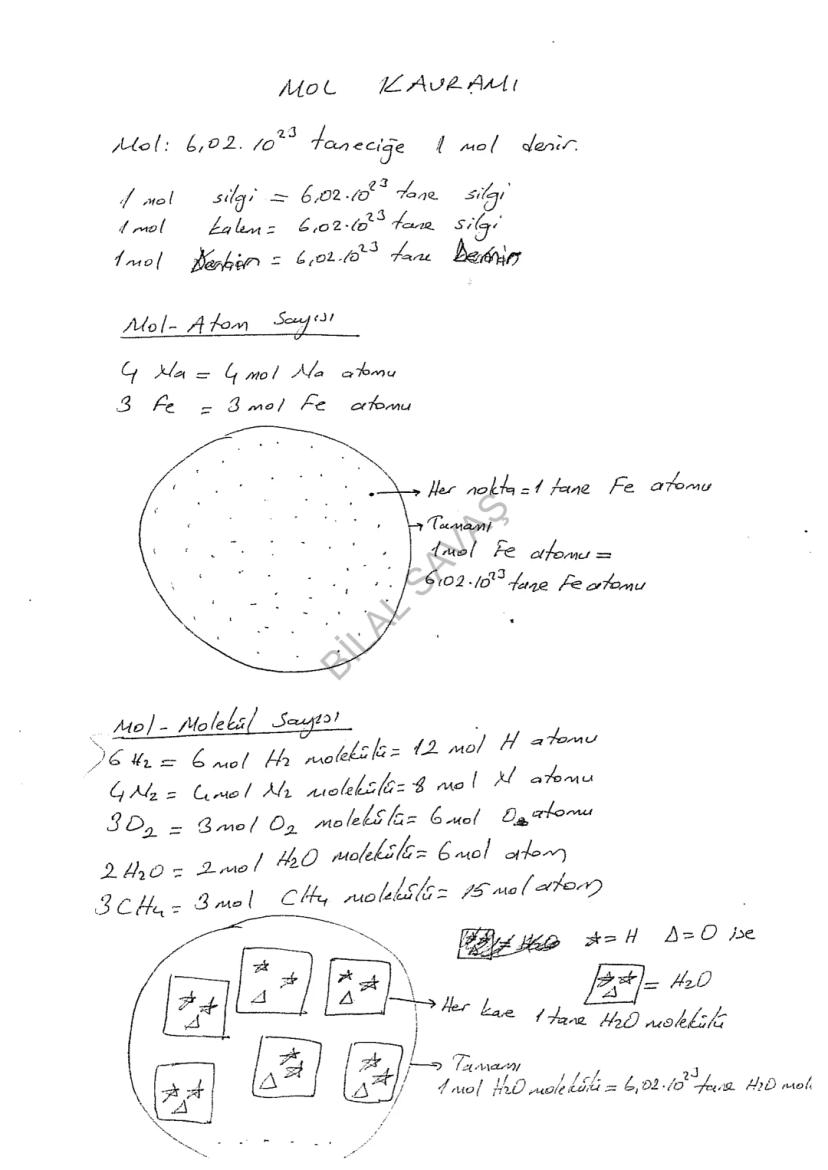 MOL KAVRAMI
Mol: 6,02.10²³ taneciğe 1 mol denir.
1 mol silgi = 6,02.10²³ tane silgi
1 mol kalem = 6,02.10²³ tane silgi
1 mol Demir = 6,02.10²³ tane Demir
Mol-Atom Sayısı
4 Na = 4 mol Na atomu
3 Fe = 3 mol Fe atomu
Her nokta = 1 tane Fe atomu
Tamamı
1 mol Fe atomu =
6,02.10²³ tane Fe atomu
BİLAL SAVAŞ
Mol-Molekül Sayısı
6 H₂ = 6 mol H₂ molekülü = 12 mol H atomu
4 N₂ = 4 mol N₂ molekülü = 8 mol N atomu
3O₂ = 3 mol O₂ molekülü = 6 mol O atomu
2 H₂O = 2 mol H₂O molekülü = 6 mol atom
3 CH₄ = 3 mol CH₄ molekülü = 15 mol atom
☆ = H Δ = O ise
= H₂O
Her kare 1 tane H₂O molekülü
Tamamı
1 mol H₂O molekülü = 6,02.10²³ tane H₂O mol